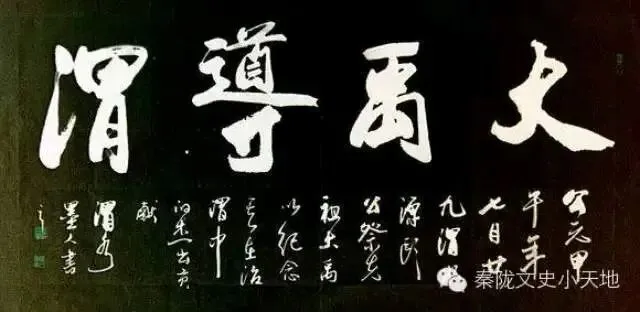 大禹導渭
公元甲
午年
七月廿
九渭
源
公祭先
祖大禹
以纪念
其在治
渭中
的杰出贡
献
渭水
墨人書
秦陇文史小天地